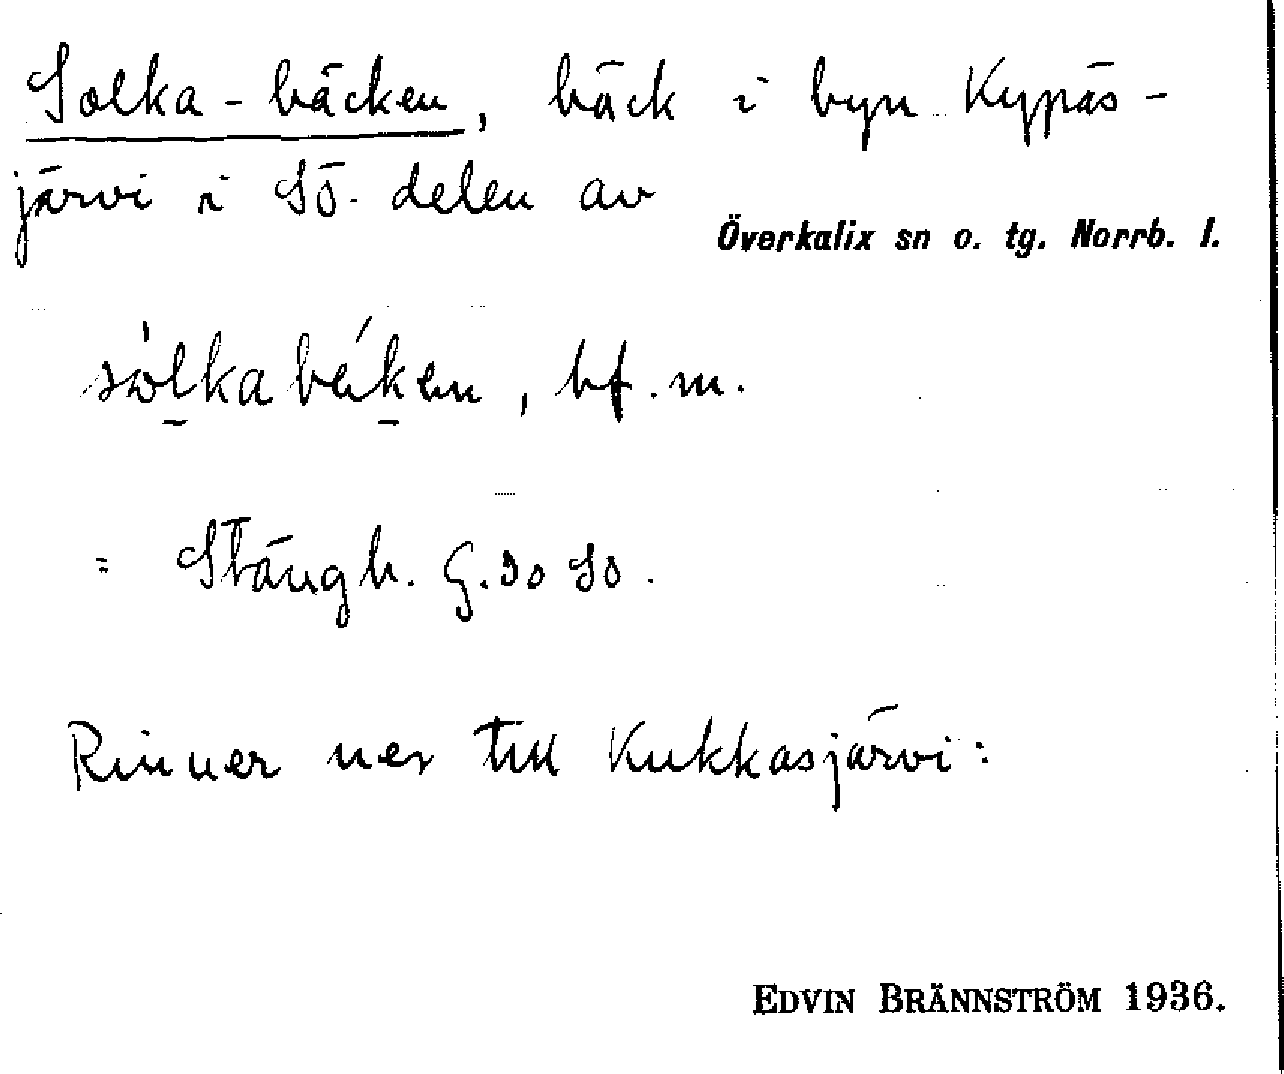 Solka-bäcken, bäck i byn Kypäs-
järvi i SÖ. delen av
Överkalix sn o. tg. Norrb. l.
bf. m.
= Stängb. G.
Rinner ner till Kukkasjärvi:
EDVIN BRÄNNSTRÖM 1936.